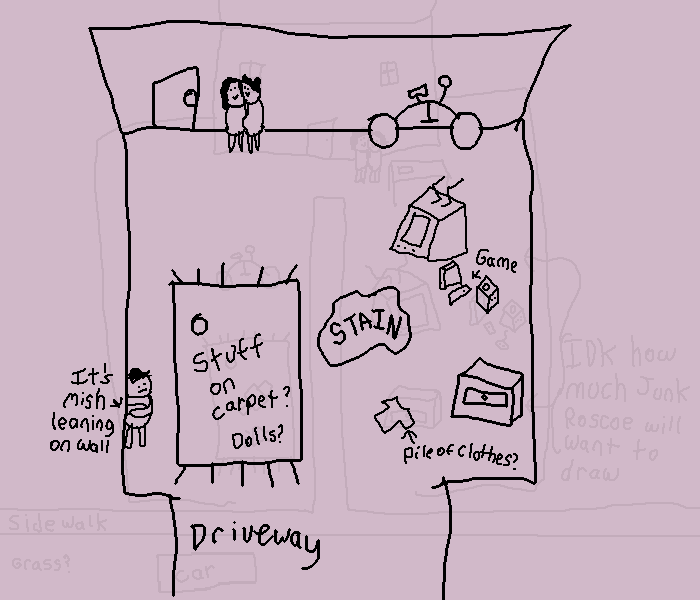 Game
STAIN
Stuff
on
carpet?
Dolls?
It's
mish
leaning
on wall
pile of clothes?
IDK how
much Junk
Roscoe will
want to
draw
Driveway
Sidewalk
Grass?
car